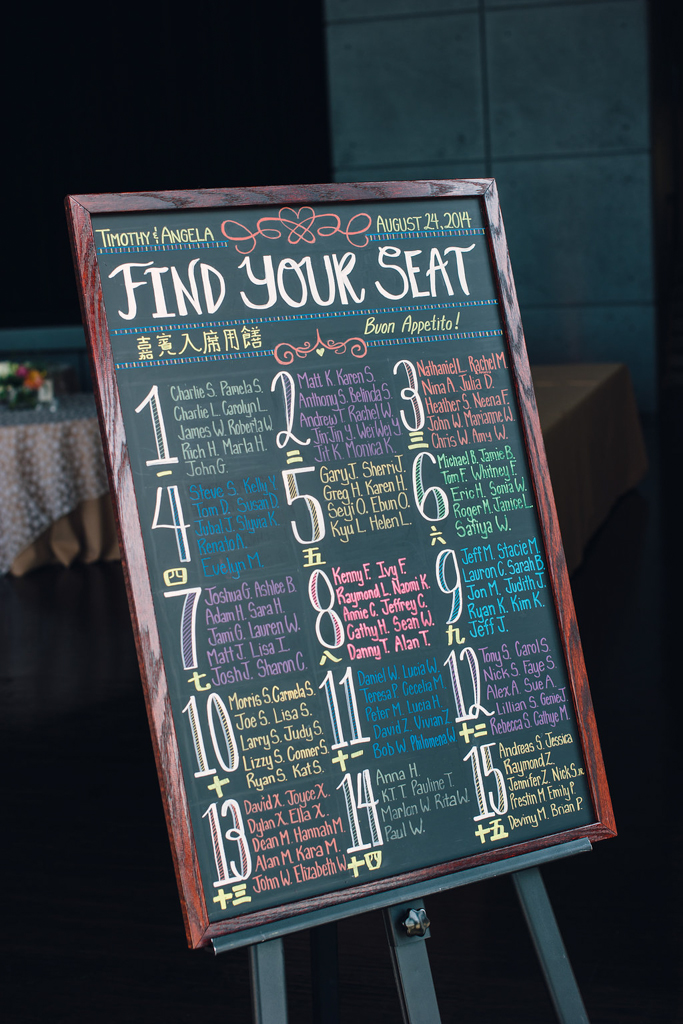 TIMOTHY & ANGELA
AUGUST 24, 2014
FIND YOUR SEAT
嘉賓入席用饍
Buon Appetito!
1
一
Charlie S. Pamela S.
Charlie L. Carolyn L.
James W. Roberta W.
Rich H. Marla H.
John G.
2
二
Matt K. Karen S.
Anthony S. Belinda S.
Andrew T. Rachel W.
JinJin Y. WeiWei Y.
Jit K. Monica K.
3
三
Nathaniel L. Rachel M.
Nina A. Julia D.
Heather S. Neena F.
John W. Marianne W.
Chris W. Amy W.
4
四
Steve S. Kelly Y.
Tom D. Susan D.
Jubal J. Slyvia K.
Renato A.
Evelyn M.
5
五
Gary J. Sherri J.
Greg H. Karen H.
Seiji O. Ebun O.
Kyu L. Helen L.
6
六
Michael B. Jamie B.
Tom F. Whitney F.
Eric H. Sonia W.
Roger M. Janice L.
Safiya W.
7
七
Joshua G. Ashlee B.
Adam H. Sara H.
Jami G. Lauren W.
Matt J. Lisa I.
Josh J. Sharon C.
8
八
Kenny F. Ivy F.
Raymond L. Naomi K.
Annie C. Jeffrey C.
Cathy H. Sean W.
Danny T. Alan T.
9
九
Jeff M. Stacie M.
Lauron C. Sarah B.
Jon M. Judith J.
Ryan K. Kim K.
Jeff J.
10
十
Morris S. Carmela S.
Joe S. Lisa S.
Larry S. Judy S.
Lizzy S. Conner S.
Ryan S. Kat S.
11
十一
Daniel W. Lucia W.
Teresa P. Cecelia M.
Peter M. Lucia H.
David Z. Vivian Z.
Bob W. Philomena W.
12
十二
Tony S. Carol S.
Nick S. Faye S.
Alex A. Sue A.
Lillian S. Genie J.
Rebecca S. Cathye M.
13
十三
David X. Joyce X.
Dylan X. Ella X.
Dean M. Hannah M.
Alan M. Kara M.
John W. Elizabeth W.
14
十四
Anna H.
KT T. Pauline T.
Marlon W. Rita W.
Paul W.
15
十五
Andreas S. Jessica
Raymond Z.
Jennifer Z. Nick S.
Prestin M. Emily P.
Deviny M. Brian P.